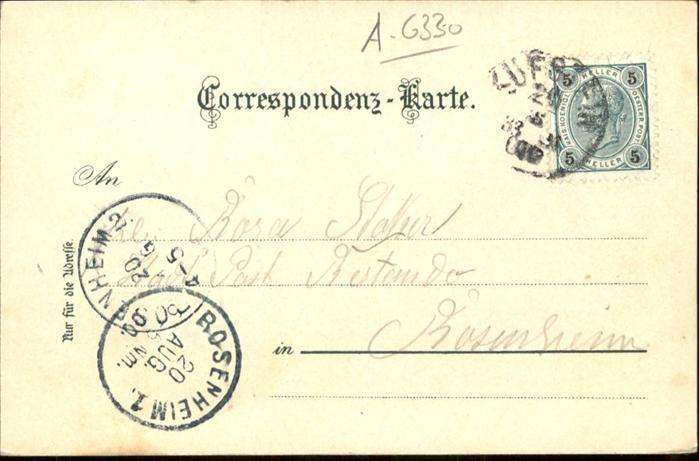 A-6330
Correspondenz-Karte.
5 HELLER 5
KAIS. KOENIGL. OESTERR. POST
5 HELLER 5
KUFSTEIN
An
Rosa
Stadt Post Restande
in Rosenheim
Nur für die Adresse.
ROSENHEIM 2.
20
4-5
ROSENHEIM 1.
20
AUG
Nm.
00